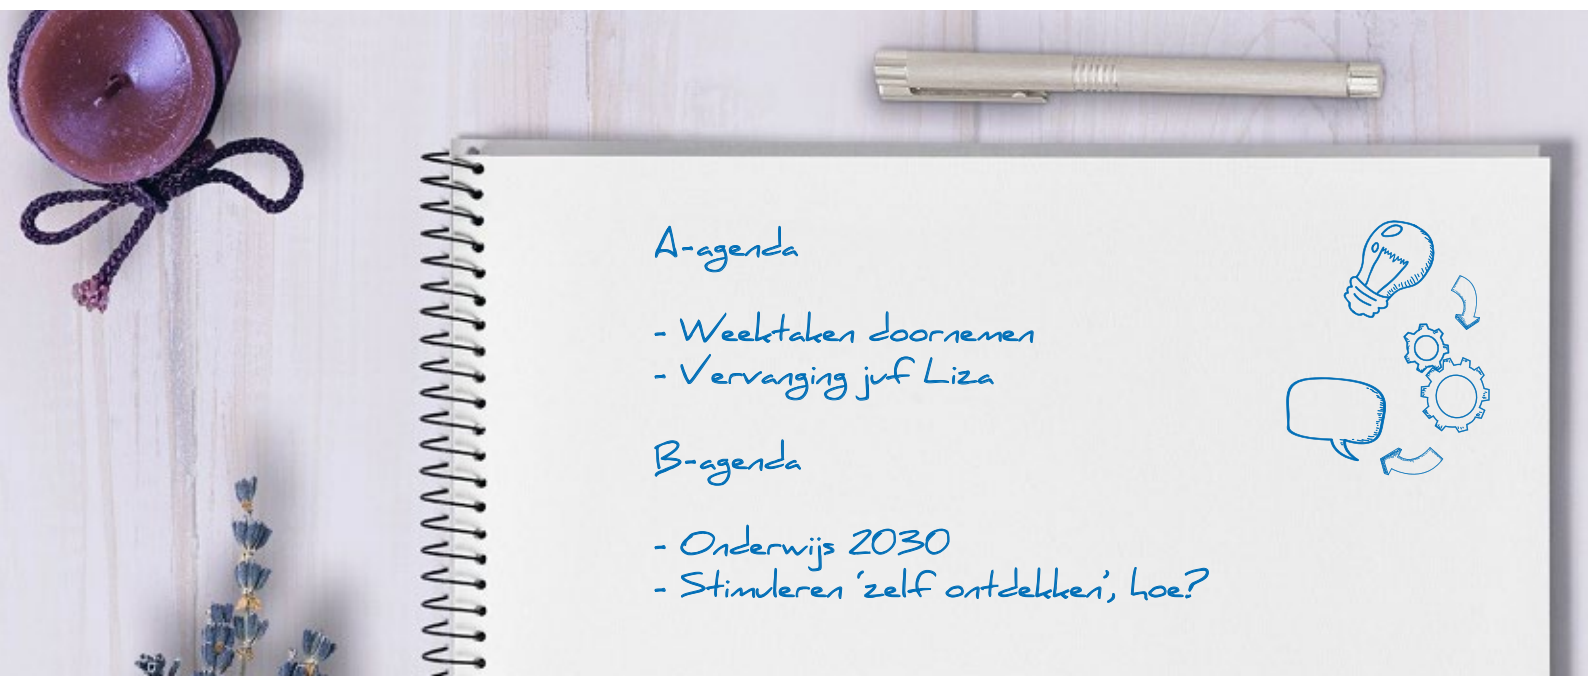 A-agenda
- Weektaken doornemen
- Vervanging juf Liza
B-agenda
- Onderwijs 2030
- Stimuleren 'zelf ontdekken', hoe?